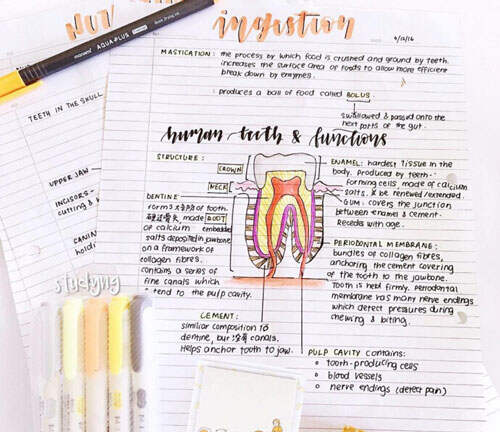 NUT
ingestion
MASTICATION: the process by which food is crushed and ground by teeth.
increases the surface area of foods to allow more efficient
break down by enzymes.
: produces a ball of food called BOLUS.
swallowed & passed onto the
next parts of the gut.
human teeth & functions
TEETH IN THE SKULL
UPPER JAW
INCISORS -
cutting &
CANIN
holdi
STRUCTURE:
CROWN
NECK
ROOT
DENTINE:
forms 大部分 of tooth.
made
of calcium
salts deposited
on a framework of
collagen fibres.
contains a series of
fine canals which
tend to the pulp cavity.
embedded
in jawbone
ENAMEL: hardest tissue in the
body. Produced by teeth-
forming cells, made of calcium
salts. X be renewed/extended.
GUM: covers the junction
between enamel & cement.
Recedes with age.
PERIODONTAL MEMBRANE:
bundles of collagen fibres,
anchoring the cement covering
of the tooth to the jawbone.
Tooth is held firmly. Periodontal
membrane has many nerve endings
which detect pressures during
chewing & biting.
CEMENT:
similiar composition to
dentine, but 没有 canals.
Helps anchor tooth to jaw.
PULP CAVITY contains:
tooth-producing cells
blood vessels
nerve endings (detect pain)
studying
monami AQUA PLUS